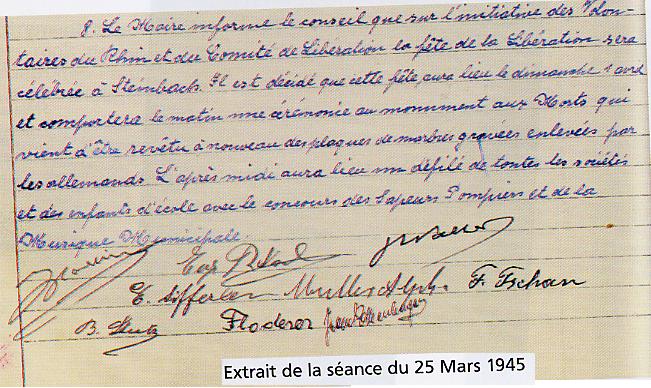 8. Le Maire informe le conseil que sur l'initiative des Volon-
taires du Rhin et du Comité de Libération la fête de la Libération sera
célébrée à Steinbach. Il est décidé que cette fête aura lieu le dimanche 1 avril
et comportera le matin une cérémonie au monument aux Morts qui
vient d'être revêtu à nouveau des plaques de marbres gravées enlevées par
les allemands. L'après midi aura lieu un défilé de toutes les sociétés
et des enfants d'école avec le concours des Sapeurs Pompiers et de la
Musique Municipale.
E. Sifferlen Muller Alph. F. Tschan
B. Floderer
Extrait de la séance du 25 Mars 1945